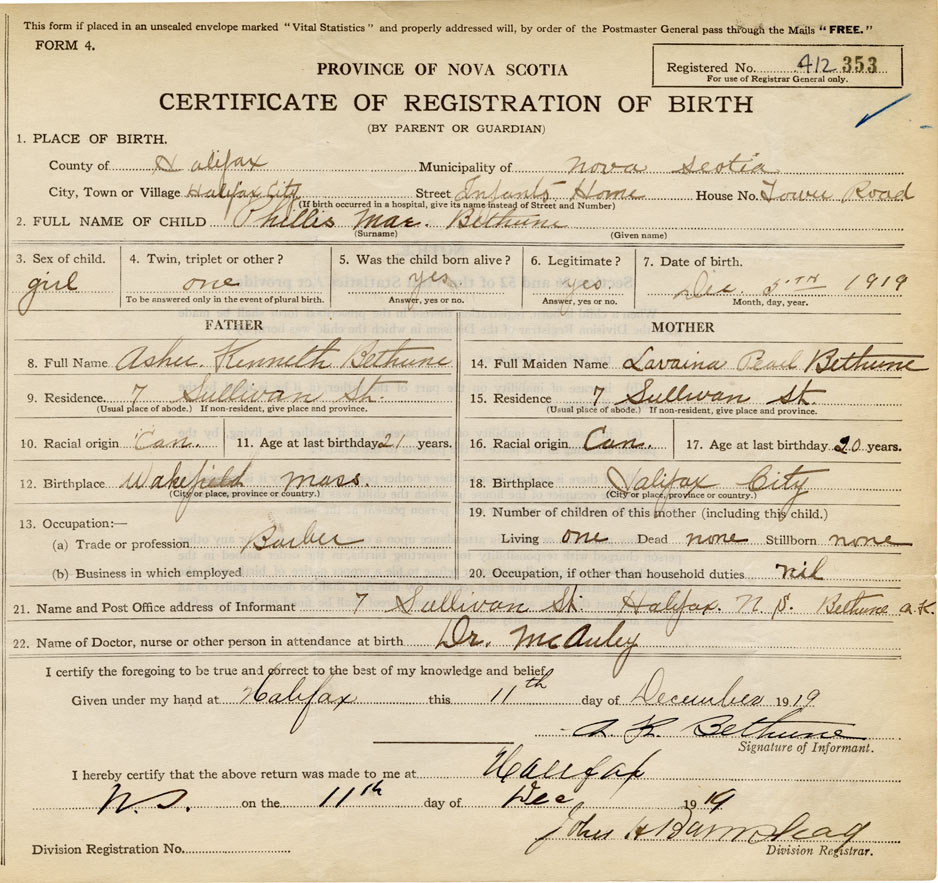 This form if placed in an unsealed envelope marked "Vital Statistics" and properly addressed will, by order of the Postmaster General pass through the Mails "FREE."
FORM 4.
Registered No. 412 353
For use of Registrar General only.
PROVINCE OF NOVA SCOTIA
CERTIFICATE OF REGISTRATION OF BIRTH
(BY PARENT OR GUARDIAN)
1. PLACE OF BIRTH.
County of Halifax Municipality of Nova Scotia
City, Town or Village Halifax City Street Infants Home House No. Tower Road
(If birth occurred in a hospital, give its name instead of Street and Number)
2. FULL NAME OF CHILD Phillis Mae. Bethune
(Surname) (Given name)
3. Sex of child. 4. Twin, triplet or other? 5. Was the child born alive? 6. Legitimate? 7. Date of birth.
girl one yes yes Dec. 5TH 1919
To be answered only in the event of plural birth. Answer, yes or no. Answer, yes or no. Month, day, year.
FATHER MOTHER
8. Full Name Kenneth Bethune 14. Full Maiden Name Lavaina Pearl Bethune
9. Residence. 7 Sullivan St. 15. Residence 7 Sullivan St.
(Usual place of abode.) If non-resident, give place and province. (Usual place of abode.) If non-resident, give place and province.
10. Racial origin Can. 11. Age at last birthday 21 years. 16. Racial origin Can. 17. Age at last birthday 20 years.
12. Birthplace Wakefield Mass. 18. Birthplace Halifax City
(City or place, province or country.) (City or place, province or country.)
13. Occupation:— 19. Number of children of this mother (including this child.)
(a) Trade or profession Barber Living one Dead none Stillborn none
(b) Business in which employed 20. Occupation, if other than household duties nil
21. Name and Post Office address of Informant 7 Sullivan St. Halifax. N. S. Bethune A.K.
22. Name of Doctor, nurse or other person in attendance at birth Dr. McAuley
I certify the foregoing to be true and correct to the best of my knowledge and belief
Given under my hand at Halifax this 11th day of December 1919
A. K. Bethune
Signature of Informant.
I hereby certify that the above return was made to me at Halifax
N.S. on the 11th day of Dec 1919
John H
Division Registration No. Division Registrar.